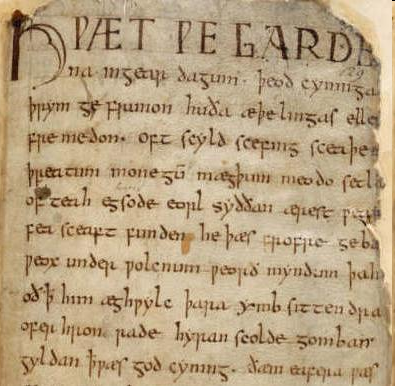 HǷÆT ǷE GARDE
na ingear dagum. þeod cyninga
þrym ge frunon huða æþelingas elle
fre medon. oft scyld scefing sceaþe
þreatum monegū mægþum meodo setla
of teah egsode eorl syððan ærest ƿear
fea sceaft funden he þæs frofre geba
ƿeox under ƿolcnum ƿeorð myndum þah
oð ꝥ him æghƿylc þara ymb sittendra
ofer hron rade hyran scolde gomban
gyldan þæs god cyning. ðæm eafera ƿæs